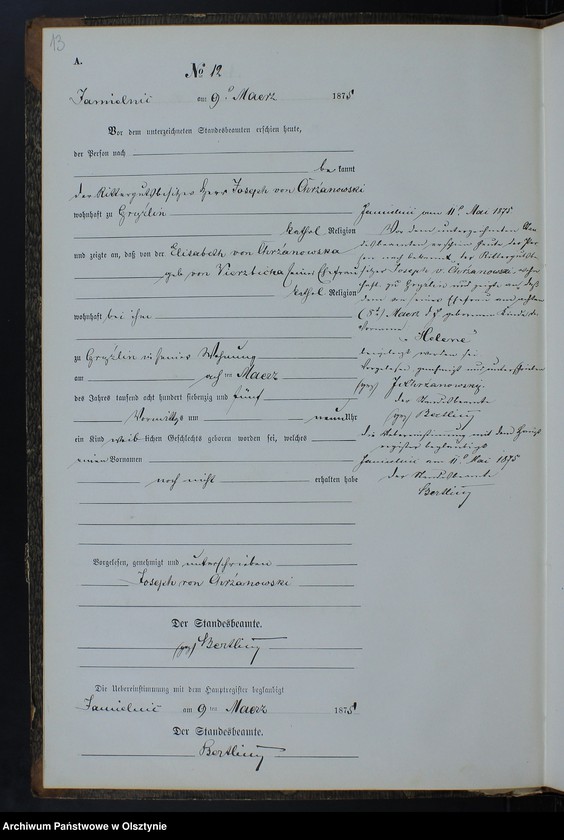 13
A.
No 12
Jamielnic am 9ten Maerz 1875
Vor dem unterzeichneten Standesbeamten erschien heute,
der Person nach
bekannt
der Rittergutsbesitzer Herr Joseph von Chrzanowski
wohnhaft zu Gryźlin
kathol. Religion
und zeigte an, daß von der Elisabeth von Chrzanowska
geb. von Vierzbicka seine Ehefrau
kathol. Religion
wohnhaft bei ihm
zu Gryźlin in seiner Wohnung
am acht ten Maerz
des Jahres tausend acht hundert siebenzig und fünf
Vormittags um neun Uhr
ein Kind weiblichen Geschlechts geboren worden sei, welches
einen Vornamen
noch nicht erhalten habe
Vorgelesen, genehmigt und unterschrieben
Joseph von Chrzanowski
Der Standesbeamte.
(gez) Bertling
Die Uebereinstimmung mit dem Hauptregister beglaubigt
Jamielnic am 9ten Maerz 1875
Der Standesbeamte.
Bertling
Jamielnic am 11ten Mai 1875
Vor dem unterzeichneten Stan-
desbeamten erschien heute der Per-
son nach bekannt der Rittergutsbe-
sitzer Joseph v. Chrzanowski, wohn-
haft zu Gryzlin und zeigte an, daß
dem von seiner Ehefrau am achten
(8ten) Maerz d. J. geborenen Kinde der
Vorname
"Helene"
beigelegt worden sei
Vorgelesen genehmigt und unterschrieben
(gez) J v Chrzanowsky.
der Standesbeamte
(gez) Bertling
die Uebereinstimmung mit dem Haupt-
register beglaubigt
Jamielnic am 11ten Mai 1875
der Standesbeamte
Bertling
Archiwum Państwowe w Olsztynie